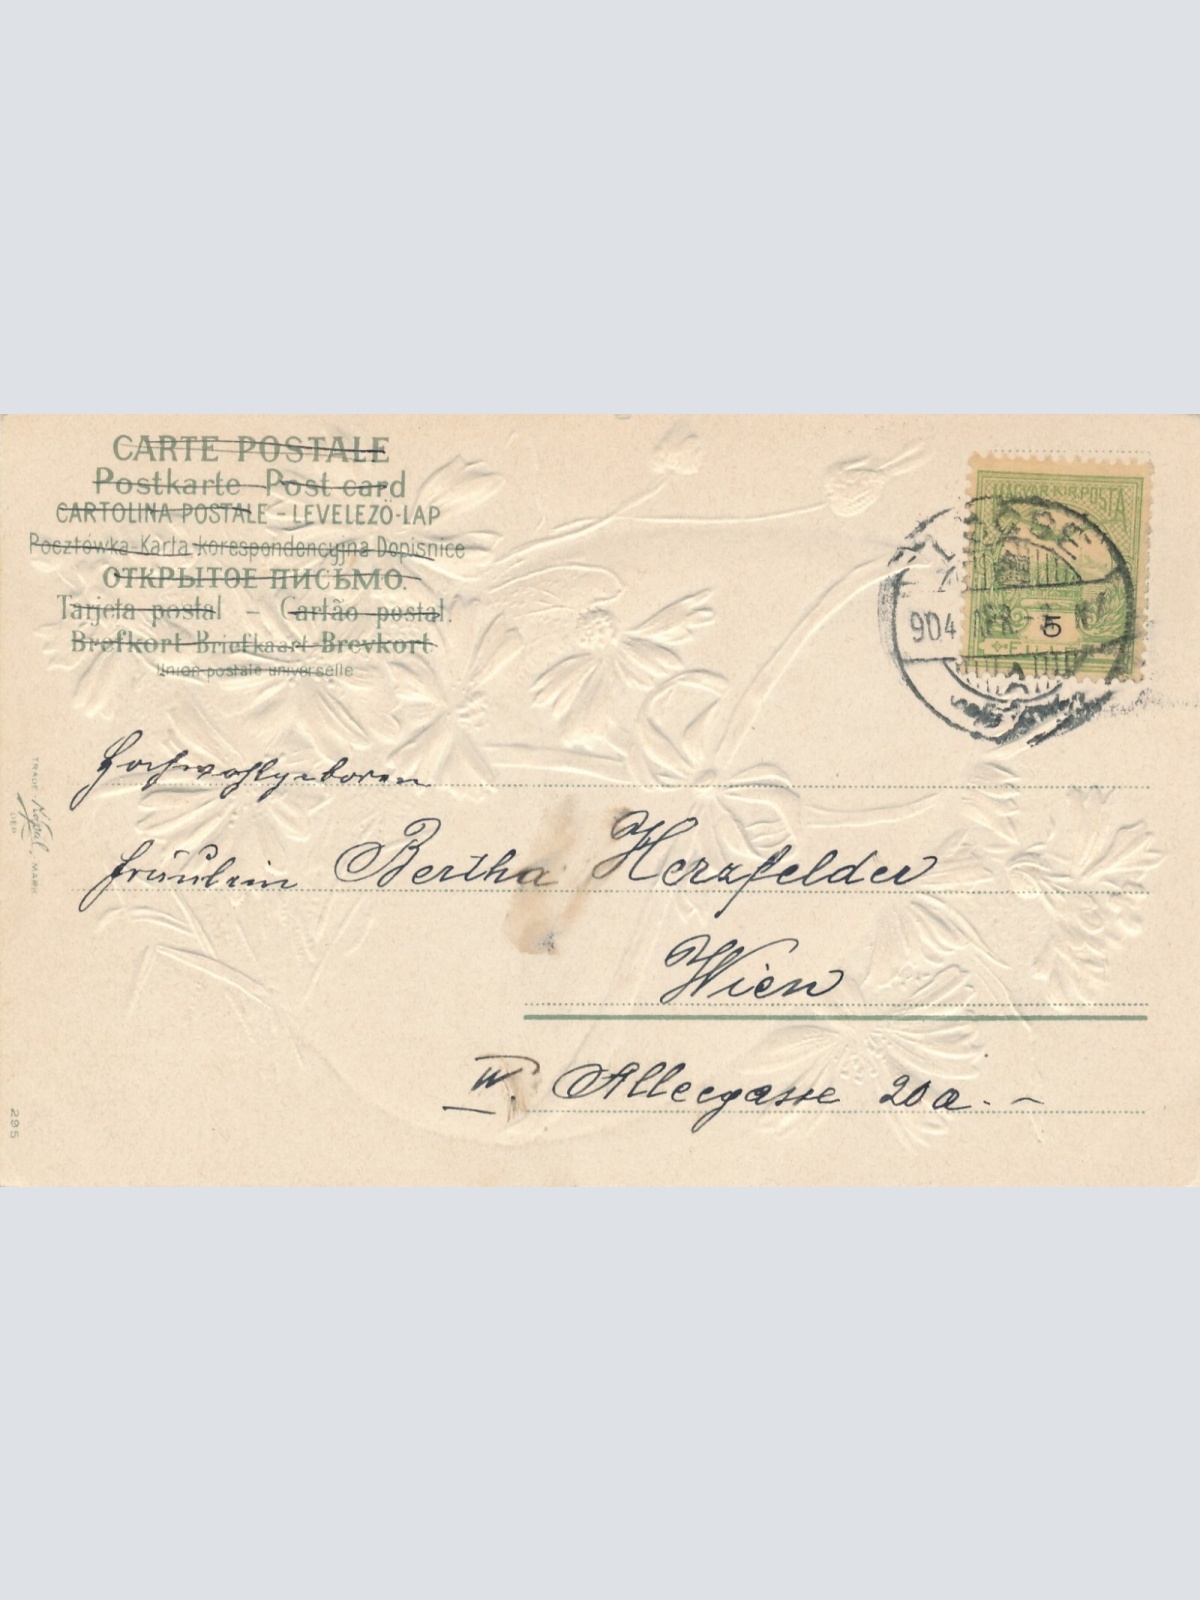 CARTE POSTALE
Postkarte Post card
CARTOLINA POSTALE - LEVELEZÖ-LAP
Pocztówka Karta korespondencyjna Dopisnice
ОТКРЫТОЕ ПИСЬМО.
Tarjeta postal - Cartão postal.
Brefkort Briefkaart Brevkort
Union postale universelle
MAGYAR KIR. POSTA
LŐCSE
904
5
A
Hochwohlgeboren
Fräulein Bertha Herzfelder
Wien
IV. Alleegasse 20a. -
TRADE MARK
295